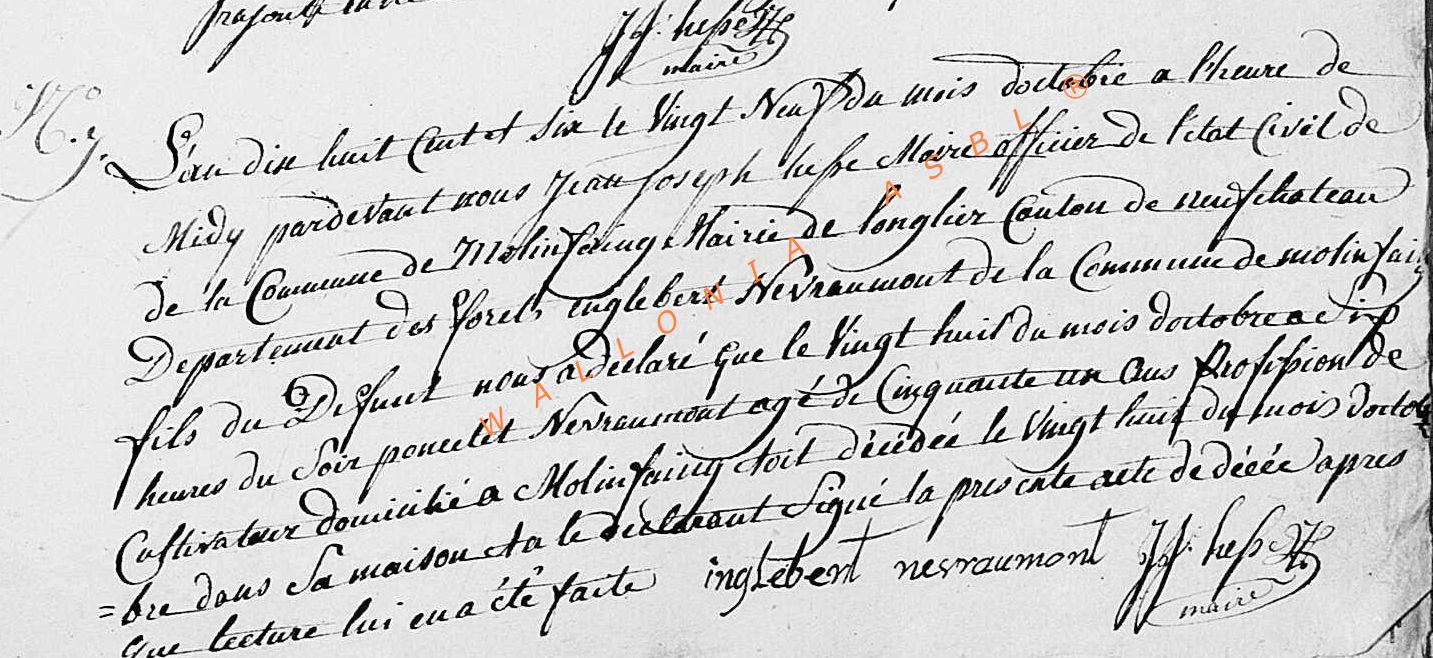 JJ: hesse
maire
N.° 7.
L'an dix huit Cent et six le Vingt Neuf du mois doctobre a l'heure de
Midy pardevant nous Jean Joseph hesse Maire officier de l'etat Civil de
de la Commune de Molinfaing Mairie de longlier Canton de neufchateau
Departement des forets inglebert Nevraumont de la Commune de molinfaing
fils du Defunt nous a déclaré que le Vingt huit du mois doctobre a Six
heures du Soir poncelet Nevraumont agé de Cinquante un ans Profession de
Cultivateur domicilié a Molinfaing etoit décédée le Vingt huit du mois docto
=bre dans Sa maison et a le declarant Signé la presente acte de décée apres
que lecture lui en a été faite inglebert nevraumont JJ: hesse
maire
WALLONIA ASBL ®